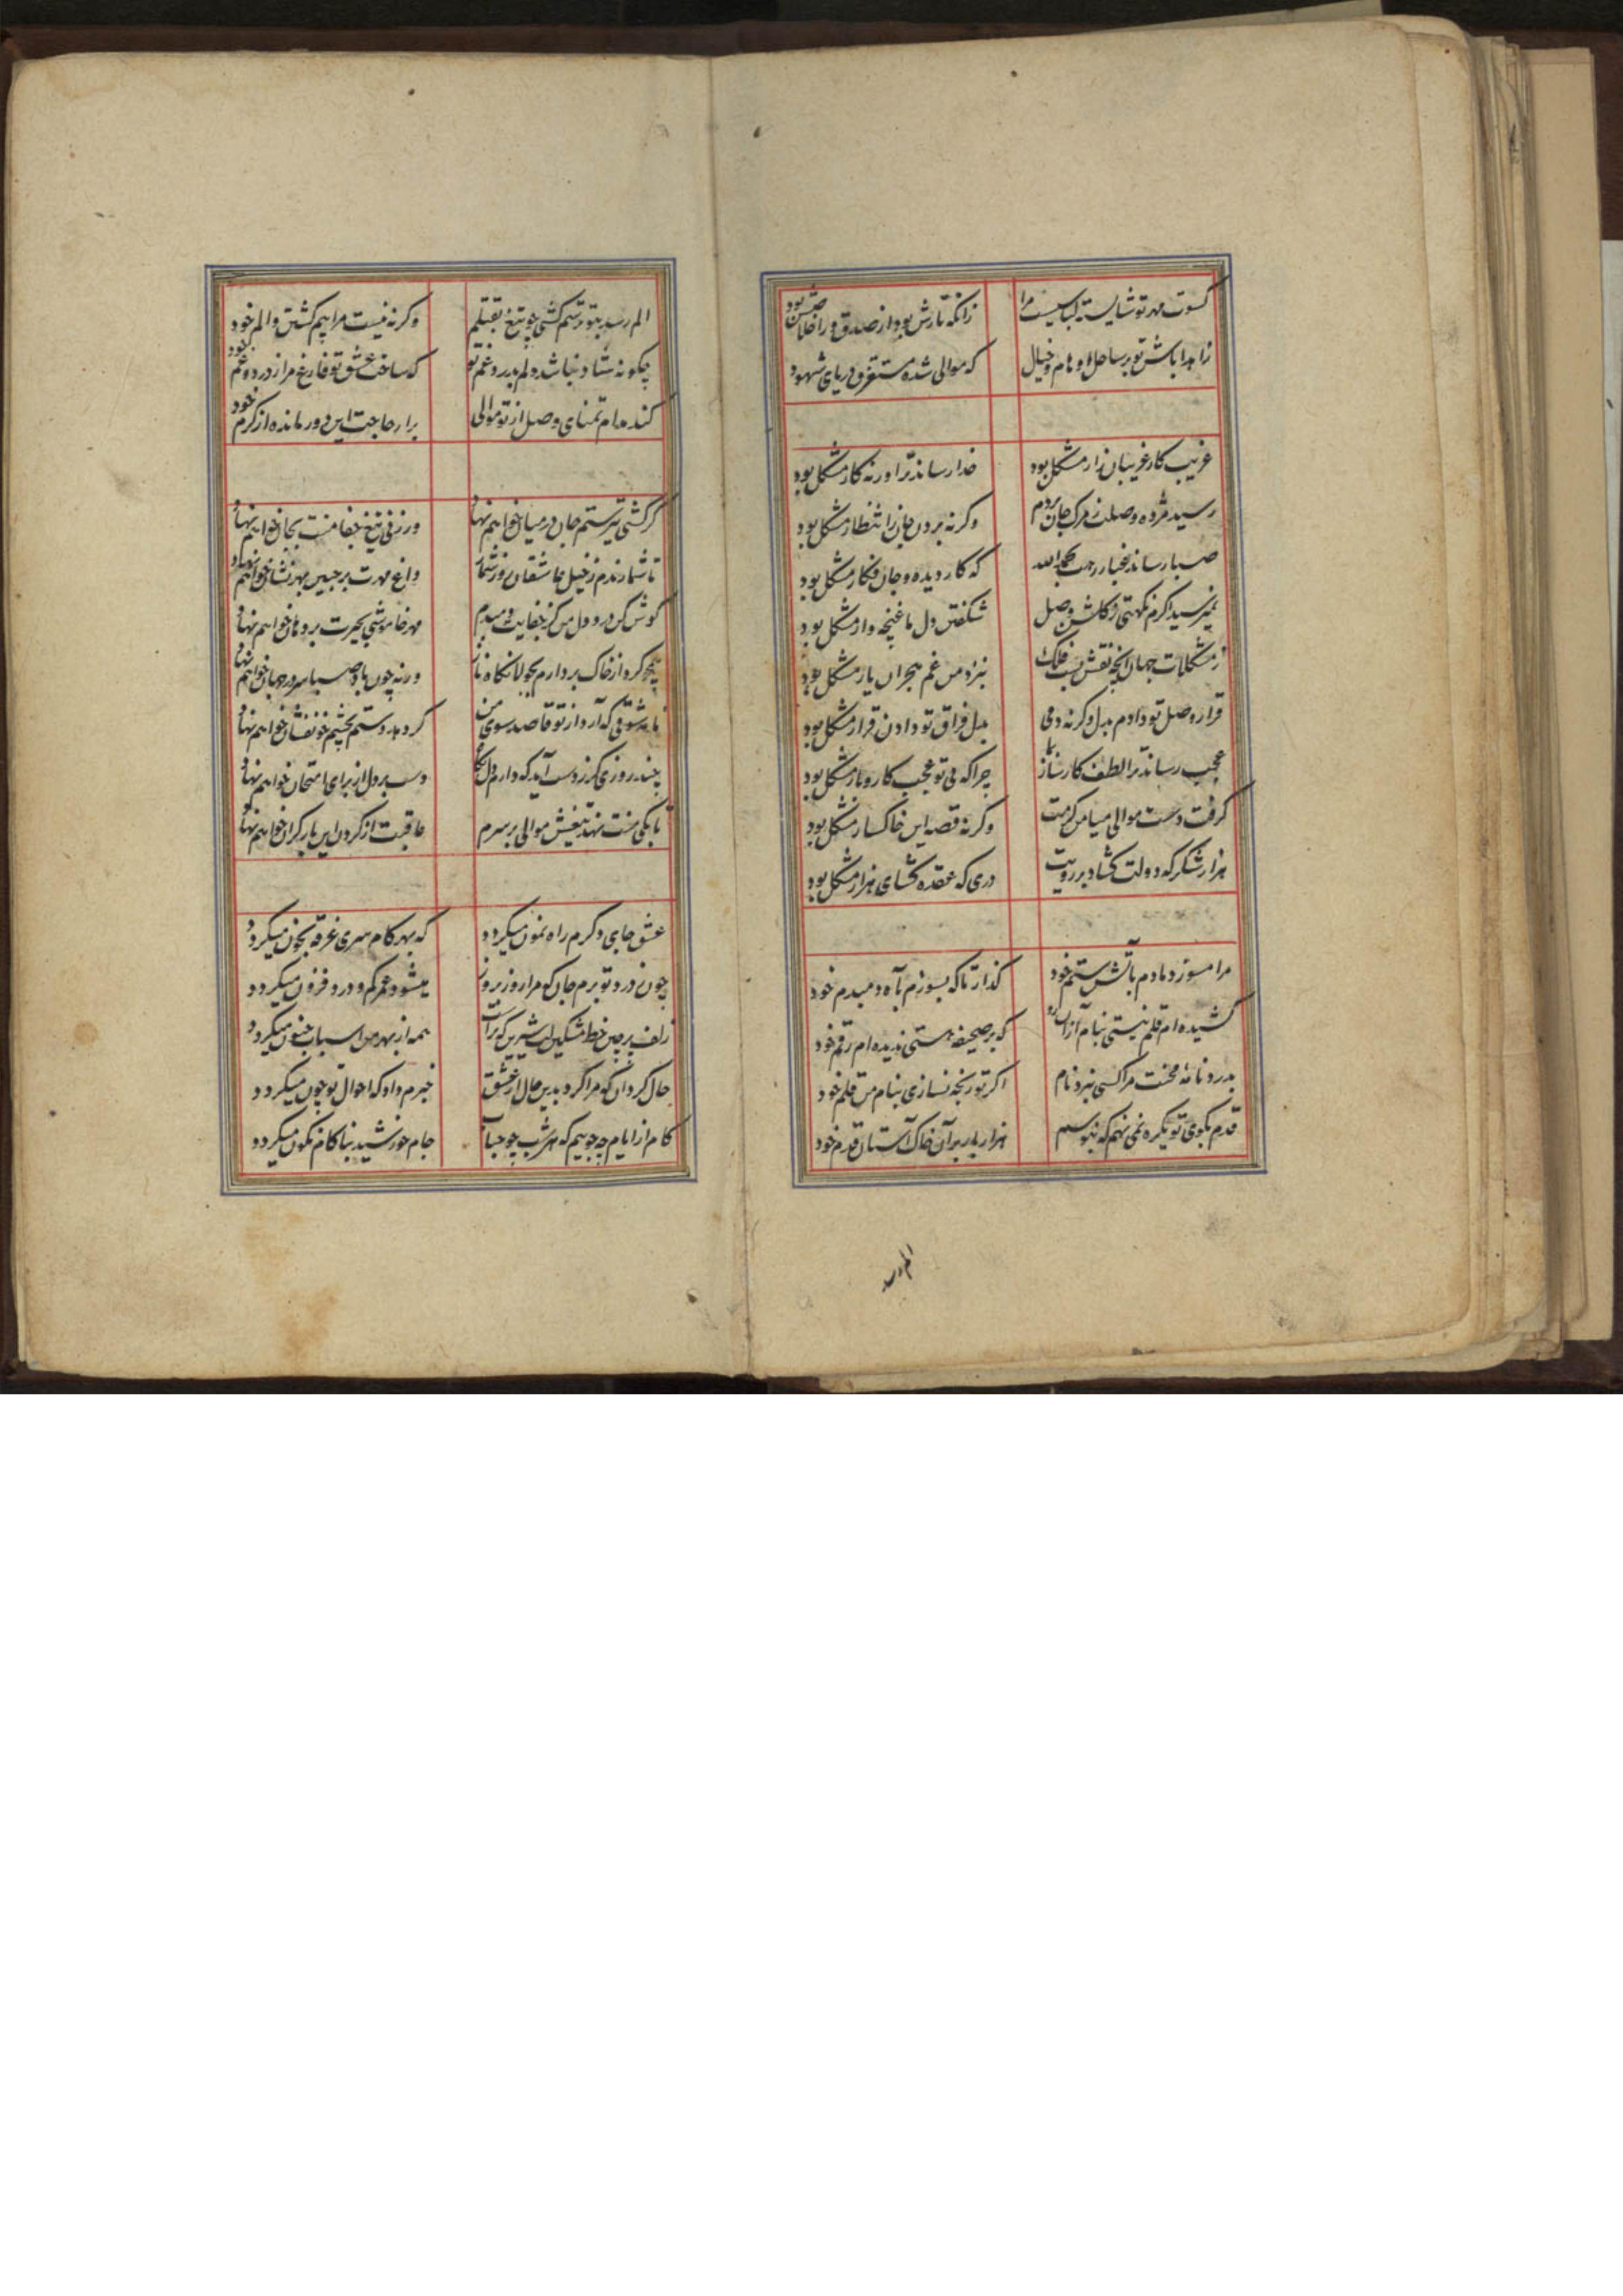 کسوت مهر تو شایسته لباسیست مرا
زانکه تارش بود از صدق و ز اخلاصش پود
زاهدا باش تو بر ساحل اوهام و خیال
که موالی شده مستغرق دریای شهود
غریب کار غریبان زار مشکل بود
خدا رساند ترا ورنه کار مشکل بود
رسید مژده وصلت ز مرگ جان بردم
وگرنه بردن جان ز انتظار مشکل بود
صبا رساند غبار رهت بحمدالله
که کار دیده و جان فکار مشکل بود
نمیرسید اگرم نکهتی ز گلشن وصل
شکفتن دل ما غنچه وار مشکل بود
ز مشکلات جهان آنچه نقش بست فلک
بنزد من غم هجران یار مشکل بود
قرار وصل تو دادم بدل وگرنه دمی
بدل فراق تو دادن قرار مشکل بود
عجب رساند ترا لطف کارساز بما
چرا که بی تو عجب کار و بار مشکل بود
گرفت دست موالی میامن کرمت
وگرنه قصه این خاکسار مشکل بود
هزار شکر که دولت گشاد بر رویت
دری که عقده گشای هزار مشکل بود
مرا مسوز دمادم بآتش ستم خود
گذار تا که بسوزم بآه دمبدم خود
کشیده ام قلم نیستی بنام ازان رو
که بر صحیفه هستی ندیده ام رقم خود
بدرد نامه محنت مرا کسی نبرد نام
اگر تو رنجه نسازی بنام من قلم خود
قدم بکوی تو یکره نمی نهم که نبوسم
هزار بار بر آن خاک آستان قدم خود
الم رسد
الم رسد بتو ترسم کشی چو تیغ بقتلم
وگرنه نیست مرا بیم کشتن و الم خود
چگونه شاد نباشد دلم بدرد و غم تو
که ساخت عشق تو فارغ مرا ز درد و غم خود
کند مدام تمنای وصل از تو موالی
برار حاجت این دور مانده از کرم خود
گر کشی تیر ستم جان در میان خواهم نهاد
ور زنی تیغ جفا منت بجان خواهم نهاد
تا شمارندم ز خیل عاشقان روز شمار
داغ مهرت بر جبین بهر نشان خواهم نهاد
گوش کن درد دل من کز جفایت دمبدم
مهر خاموشی بحیرت بر دهان خواهم نهاد
همچو گرد از خاک بردارم بجولانگاه ناز
ورنه چون باد صبا سر در جهان خواهم نهاد
نامه شوقی که آرد از تو قاصد سوی من
گر دهد دستم بچشم خونفشان خواهم نهاد
چند روزی گر ز دست آید که دارم دل نگاه
دست بر دل از برای امتحان خواهم نهاد
تا بکی منت نهد تیغش موالی بر سرم
عاقبت از گردن این بار گران خواهم نهاد
عشق جایی دگرم راه نمون میگردد
که بهر گام سری غرقه بخون میگردد
چون ز درد تو برم جان که مرا روز بروز
میشود عمر کم و درد فزون میگردد
زلف پرچین خط مشکین لب شیرین که تراست
همه از بهر من اسباب جنون میگردد
حال گردان که مرا کرد بدین حال از عشق
خبرم داد که احوال تو چون میگردد
کام از ایام چه جوییم که هر شب چو حباب
جام خورشید بناکام نگون میگردد